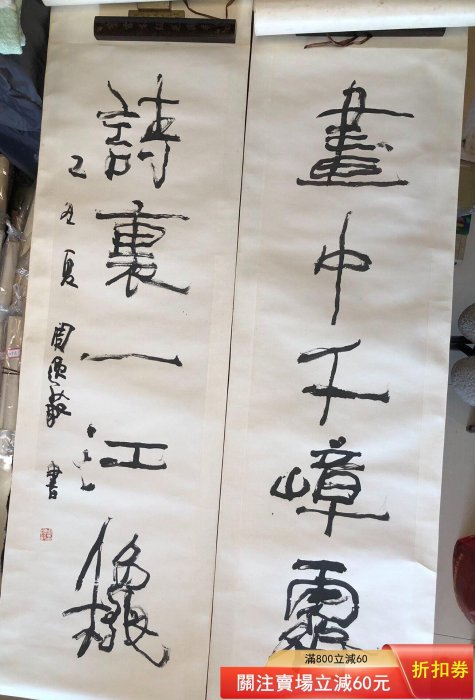 畫中千嶂
詩裏一江
丑夏 周 書
滿800立減60
關注賣場立減60元
折扣券